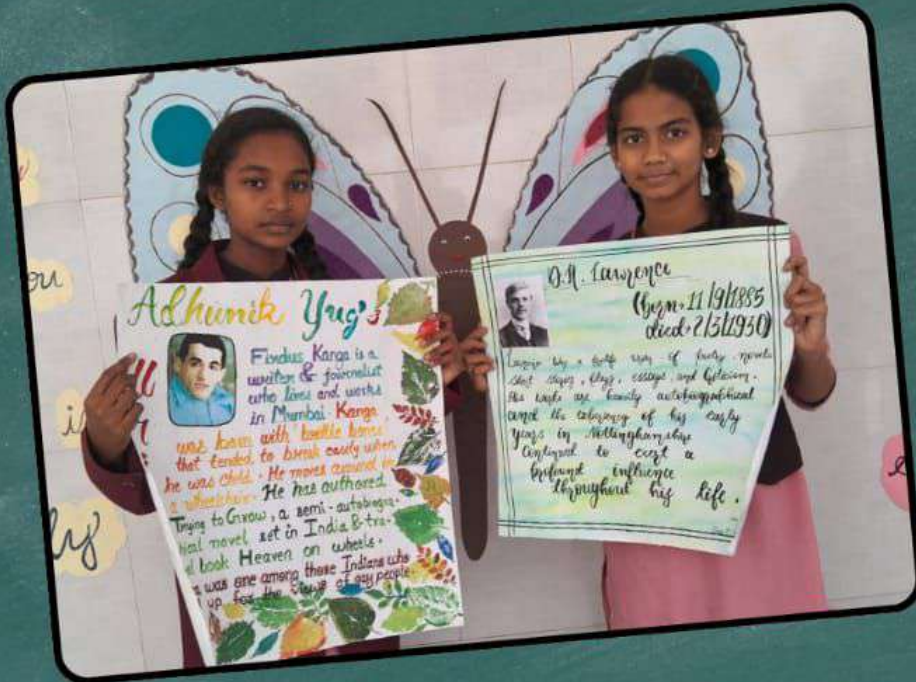 Adhunik Yug's
Firdus Kanga is a
writer & journalist
who lives and works
in Mumbai. Kanga
was born with 'brittle bones'
that tended to break easily when
he was child. He moves around in
a wheelchair. He has authored
Trying to Grow, a semi-autobiogra-
hical novel set in India & tra-
el book Heaven on wheels.
was one among those Indians who
up for the views of gay people
D.H. Lawrence
(born: 11/9/1885
died: 2/3/1930)
novels
short, plays, essays, and
His works are heavily autobiographical
and the experiency of his early
years in Nottinghamshire
continued to exert a
profound influence
throughout his life.
ou
is
ly